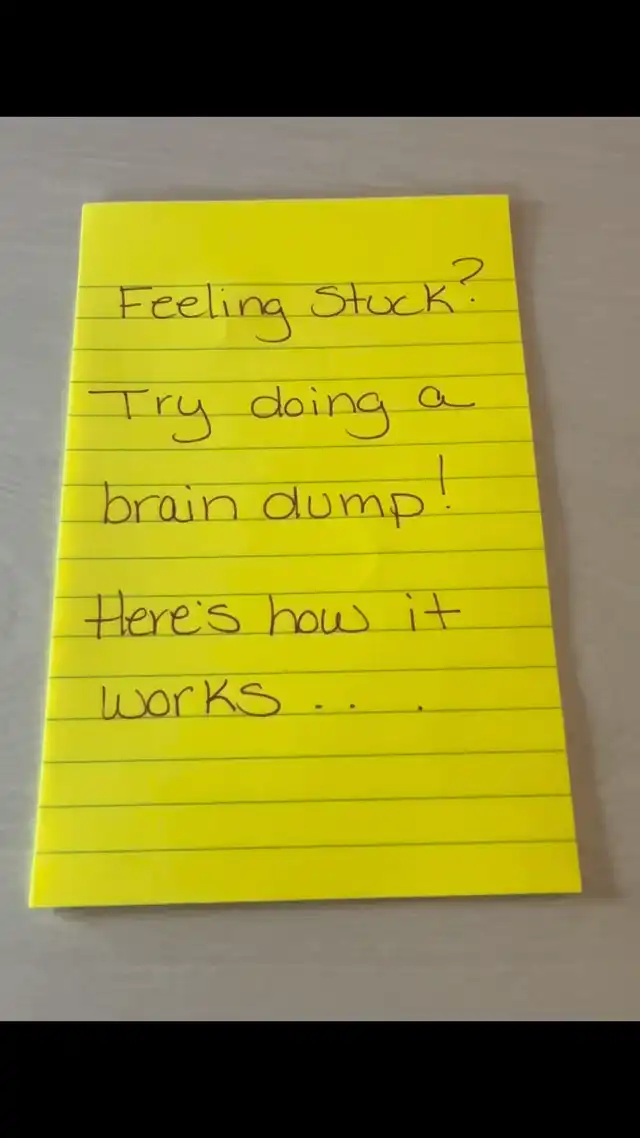 Feeling Stuck?
Try doing a
brain dump!
Here's how it
works . . .